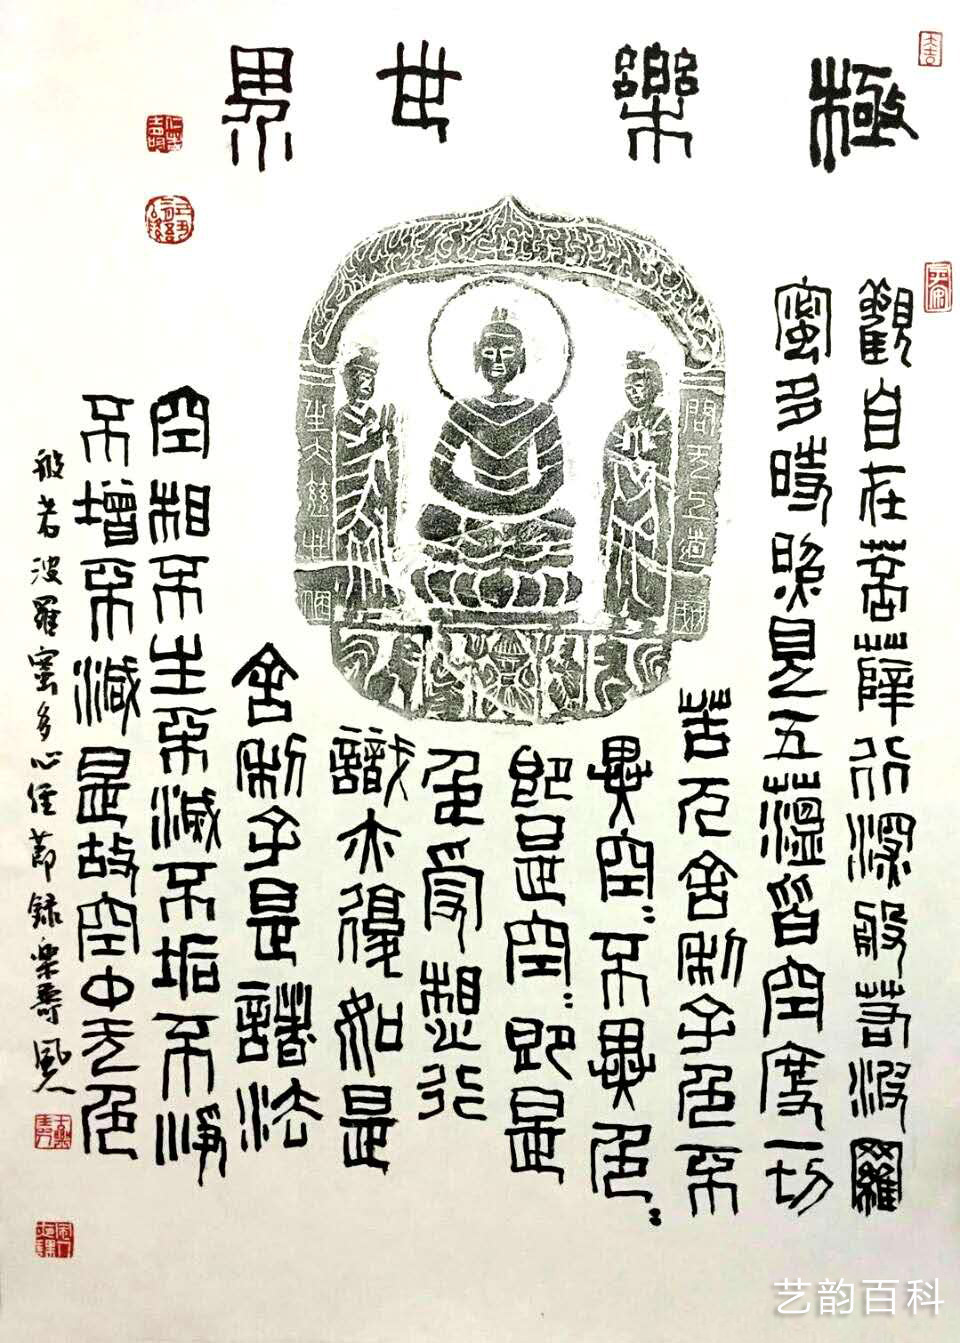 極樂世界
觀自在菩薩行深般若波羅
蜜多時照見五蘊皆空度一切
苦厄舍利子色不
異空〻不異色〻
即是空〻即是
色受想行
識亦復如是
舍利子是諸法
空相不生不滅不垢不淨
不增不減是故空中无色
般若波羅蜜多心經節録樂壽
艺韵百科